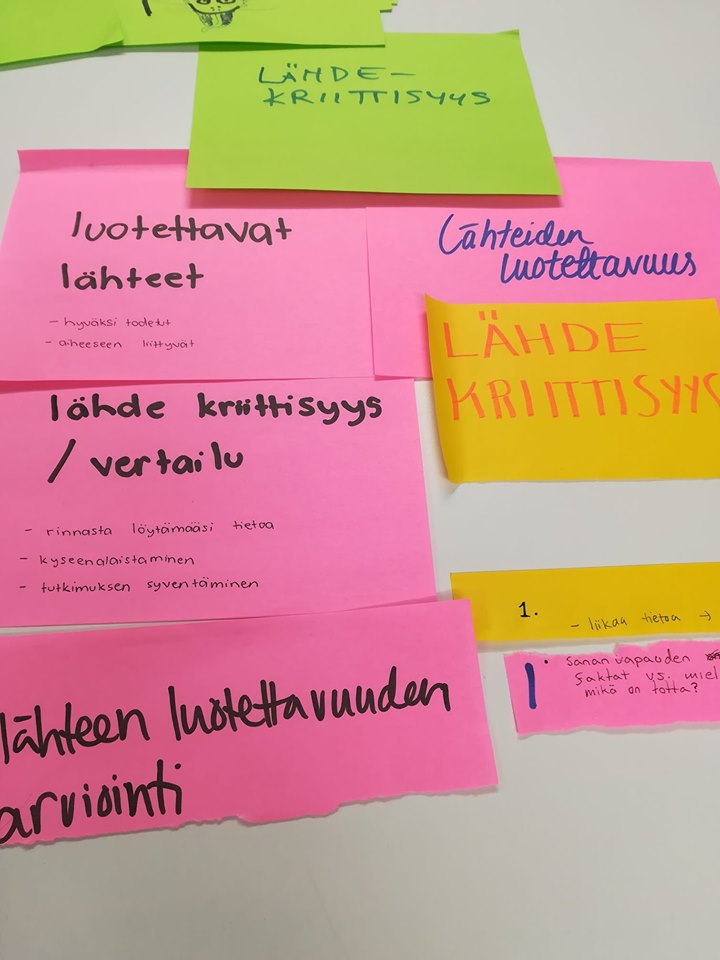 LÄHDE-
KRIITTISYYS
luotettavat
lähteet
- hyväksi todetut
- aiheeseen liittyvät
Lähteiden
luotettavuus
LÄHDE
KRIITTISYYS
lähde kriittisyys
/ vertailu
- rinnasta löytämääsi tietoa
- kyseenalaistaminen
- tutkimuksen syventäminen
1.
- liikaa tietoa →
• Sananvapauden
faktat vs. miel
mikä on totta?
lähteen luotettavuuden
arviointi